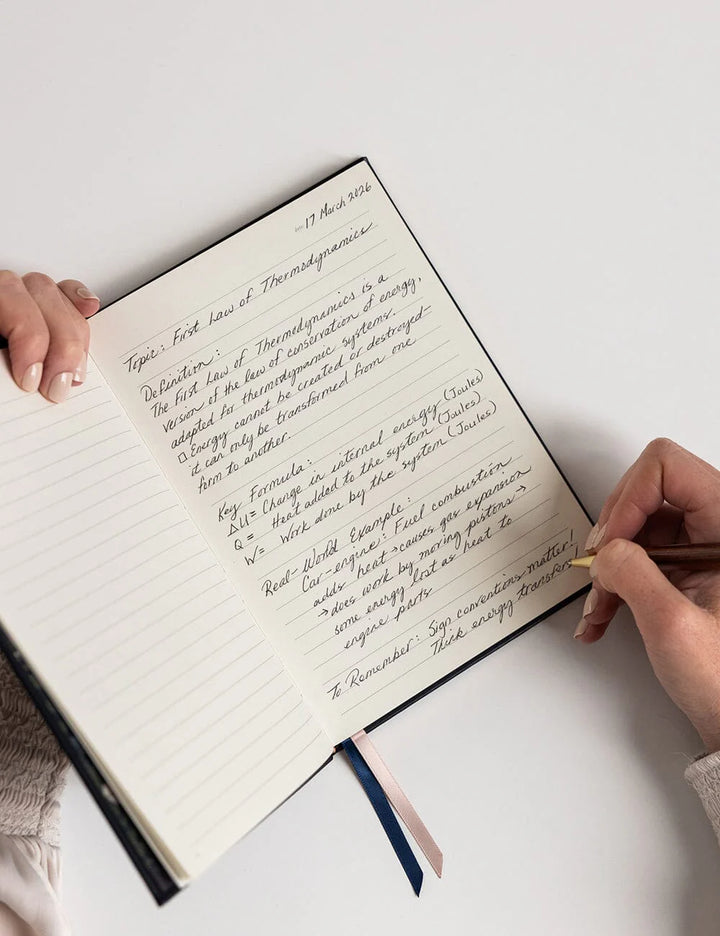 17 March 2026
Topic: First Law of Thermodynamics
Definition:
The First Law of Thermodynamics is a
version of the law of conservation of energy,
adapted for thermodynamic systems.
□ Energy cannot be created or destroyed-
it can only be transformed from one
form to another.
Key Formula:
ΔU = Change in internal energy (Joules)
Q = Heat added to the system (Joules)
W = Work done by the system (Joules)
Real-World Example:
Car-engine: Fuel combustion
adds heat → causes gas expansion
→ does work by moving pistons →
some energy lost as heat to
engine parts
To Remember: Sign conventions matter!
Think energy transfers!